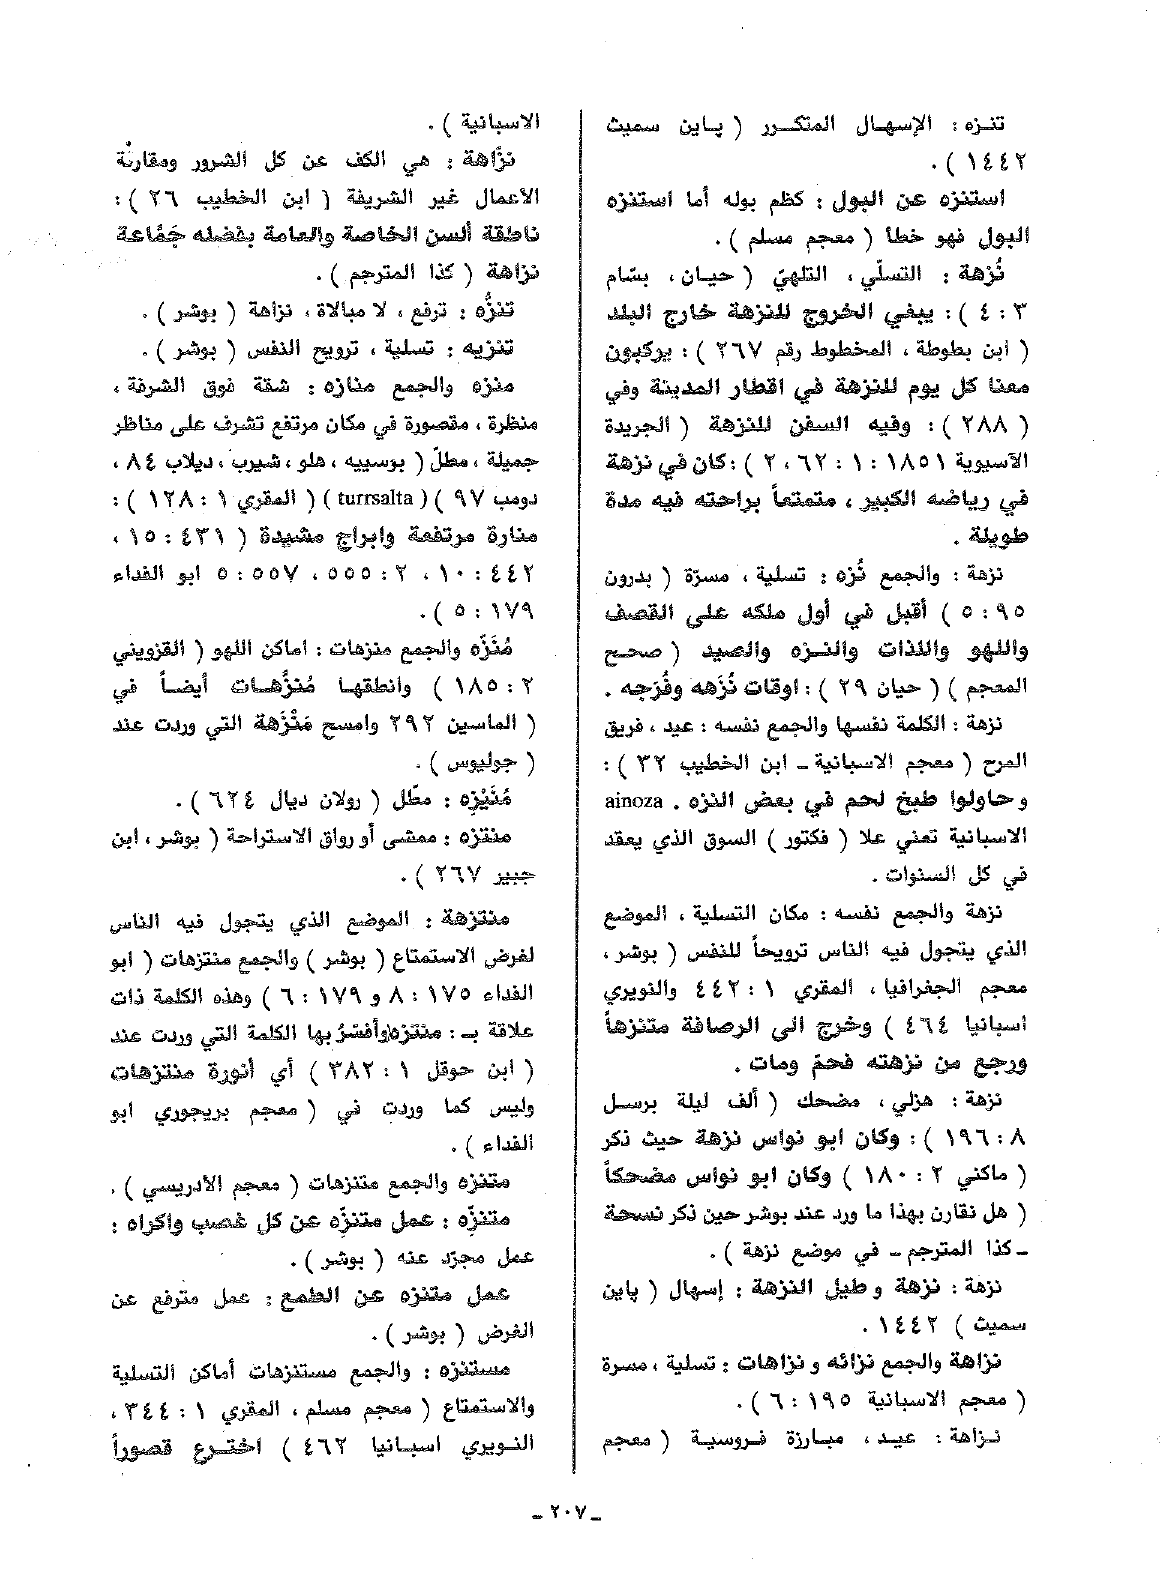 تنزه : الإسهال المتكرر ( پاين سميث
١٤٤٢ ) .
استنزه عن البول : كظم بوله أما استنزه
البول فهو خطأ ( معجم مسلم ) .
نُزهة : التسلّي ، التلهيّ ( حيان ، بسّام
٣ : ٤ ) : يبغي الخروج للنزهة خارج البلد
( ابن بطوطة ، المخطوط رقم ٢٦٧ ) : يركبون
معنا كل يوم للنزهة في اقطار المدينة وفي
( ٢٨٨ ) : وفيه السفن للنزهة ( الجريدة
الآسيوية ١٨٥١ : ١ : ٦٢ ، ٢ ) : كان في نزهة
في رياضه الكبير ، متمتعاً براحته فيه مدة
طويلة .
نزهة : والجمع نُزه : تسلية ، مسرّة ( بدرون
٩٥ : ٥ ) أقبل في أول ملكه على القصف
واللهو واللذات والنزه والصيد ( صحح
المعجم ) ( حيان ٢٩ ) : اوقات نُزَهه وفُرَجه .
نزهة : الكلمة نفسها والجمع نفسه : عيد ، فريق
المرح ( معجم الاسبانية ـ ابن الخطيب ٣٢ ) :
وحاولوا طبخ لحم في بعض النزه . ainoza
الاسبانية تعني علا ( فكتور ) السوق الذي يعقد
في كل السنوات .
نزهة والجمع نفسه : مكان التسلية ، الموضع
الذي يتجول فيه الناس ترويحاً للنفس ( بوشر ،
معجم الجغرافيا ، المقري ١ : ٤٤٢ والنويري
اسبانيا ٤٦٤ ) وخرج الى الرصافة متنزهاً
ورجع من نزهته فحمّ ومات .
نزهة : هزلي ، مضحك ( ألف ليلة برسل
٨ : ١٩٦ ) : وكان ابو نواس نزهة حيث ذكر
( ماكني ٢ : ١٨٠ ) وكان ابو نواس مضحكاً
( هل نقارن بهذا ما ورد عند بوشر حين ذكر نسحة
ـ كذا المترجم ـ في موضع نزهة ) .
نزهة : نزهة وطيل النزهة : إسهال ( پاين
سميث ) ١٤٤٢ .
نزاهة والجمع نزائه و نزاهات : تسلية ، مسرة
( معجم الاسبانية ١٩٥ : ٦ ) .
نزاهة : عيد ، مبارزة فروسية ( معجم
الاسبانية ) .
نزّاهة : هي الكف عن كل الشرور ومقارنة
الأعمال غير الشريفة ( ابن الخطيب ٢٦ ) :
ناطقة ألسن الخاصة والعامة بفضله جمّاعة
نزاهة ( كذا المترجم ) .
تنزُّه : ترفع ، لا مبالاة ، نزاهة ( بوشر ) .
تنزيه : تسلية ، ترويح النفس ( بوشر ) .
منزه والجمع منازه : شقة فوق الشرفة ،
منظرة ، مقصورة في مكان مرتفع تشرف على مناظر
جميلة ، مطلّ ( بوسييه ، هلو ، شيرب ، ديلاب ٨٤ ،
دومب ٩٧ ) ( turrsalta ) ( المقري ١ : ١٢٨ ) :
منارة مرتفعة وابراج مشيدة ( ٤٣١ : ١٥ ،
٤٤٢ : ١٠ ، ٢ : ٥٥٥ ، ٥٥٧ : ٥ ابو الفداء
١٧٩ : ٥ ) .
مُنَزّه والجمع منزهات : اماكن اللهو ( القزويني
٢ : ١٨٥ ) وانطقها مُنزَّهات أيضاً في
( الماسين ٢٩٢ وامسح مَنْزَهة التي وردت عند
( جوليوس ) .
مُنَيْزِه : مطّل ( رولان ديال ٦٢٤ ) .
منتزه : ممشى أو رواق الاستراحة ( بوشر ، ابن
جبير ٢٦٧ ) .
منتزهة : الموضع الذي يتجول فيه الناس
لغرض الاستمتاع ( بوشر ) والجمع منتزهات ( ابو
الفداء ١٧٥ : ٨ و ١٧٩ : ٦ ) وهذه الكلمة ذات
علاقة بـ : منتزه وأفسّر بها الكلمة التي وردت عند
( ابن حوقل ١ : ٣٨٢ ) أي أنورة منتزهات
وليس كما وردت في ( معجم بريجوري ابو
الفداء ) .
متنزه والجمع متنزهات ( معجم الادريسي ) .
متنزّه : عمل متنزّه عن كل غصب واكراه :
عمل مجرّد عنه ( بوشر ) .
عمل متنزه عن الطمع : عمل مترفع عن
الغرض ( بوشر ) .
مستنزه : والجمع مستنزهات أماكن التسلية
والاستمتاع ( معجم مسلم ، المقري ١ : ٣٤٤ ،
النويري اسبانيا ٤٦٢ ) اخترع قصوراً
ـ ٢٠٧ ـ